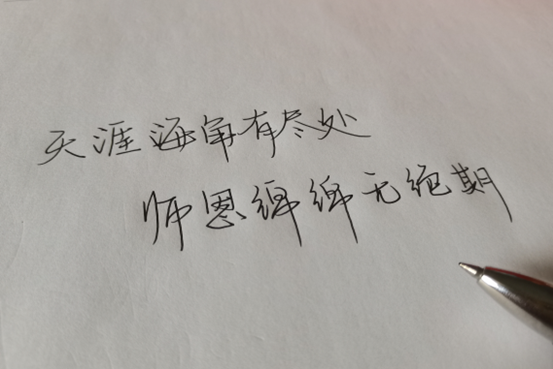 天涯海角有尽处
师恩绵绵无绝期